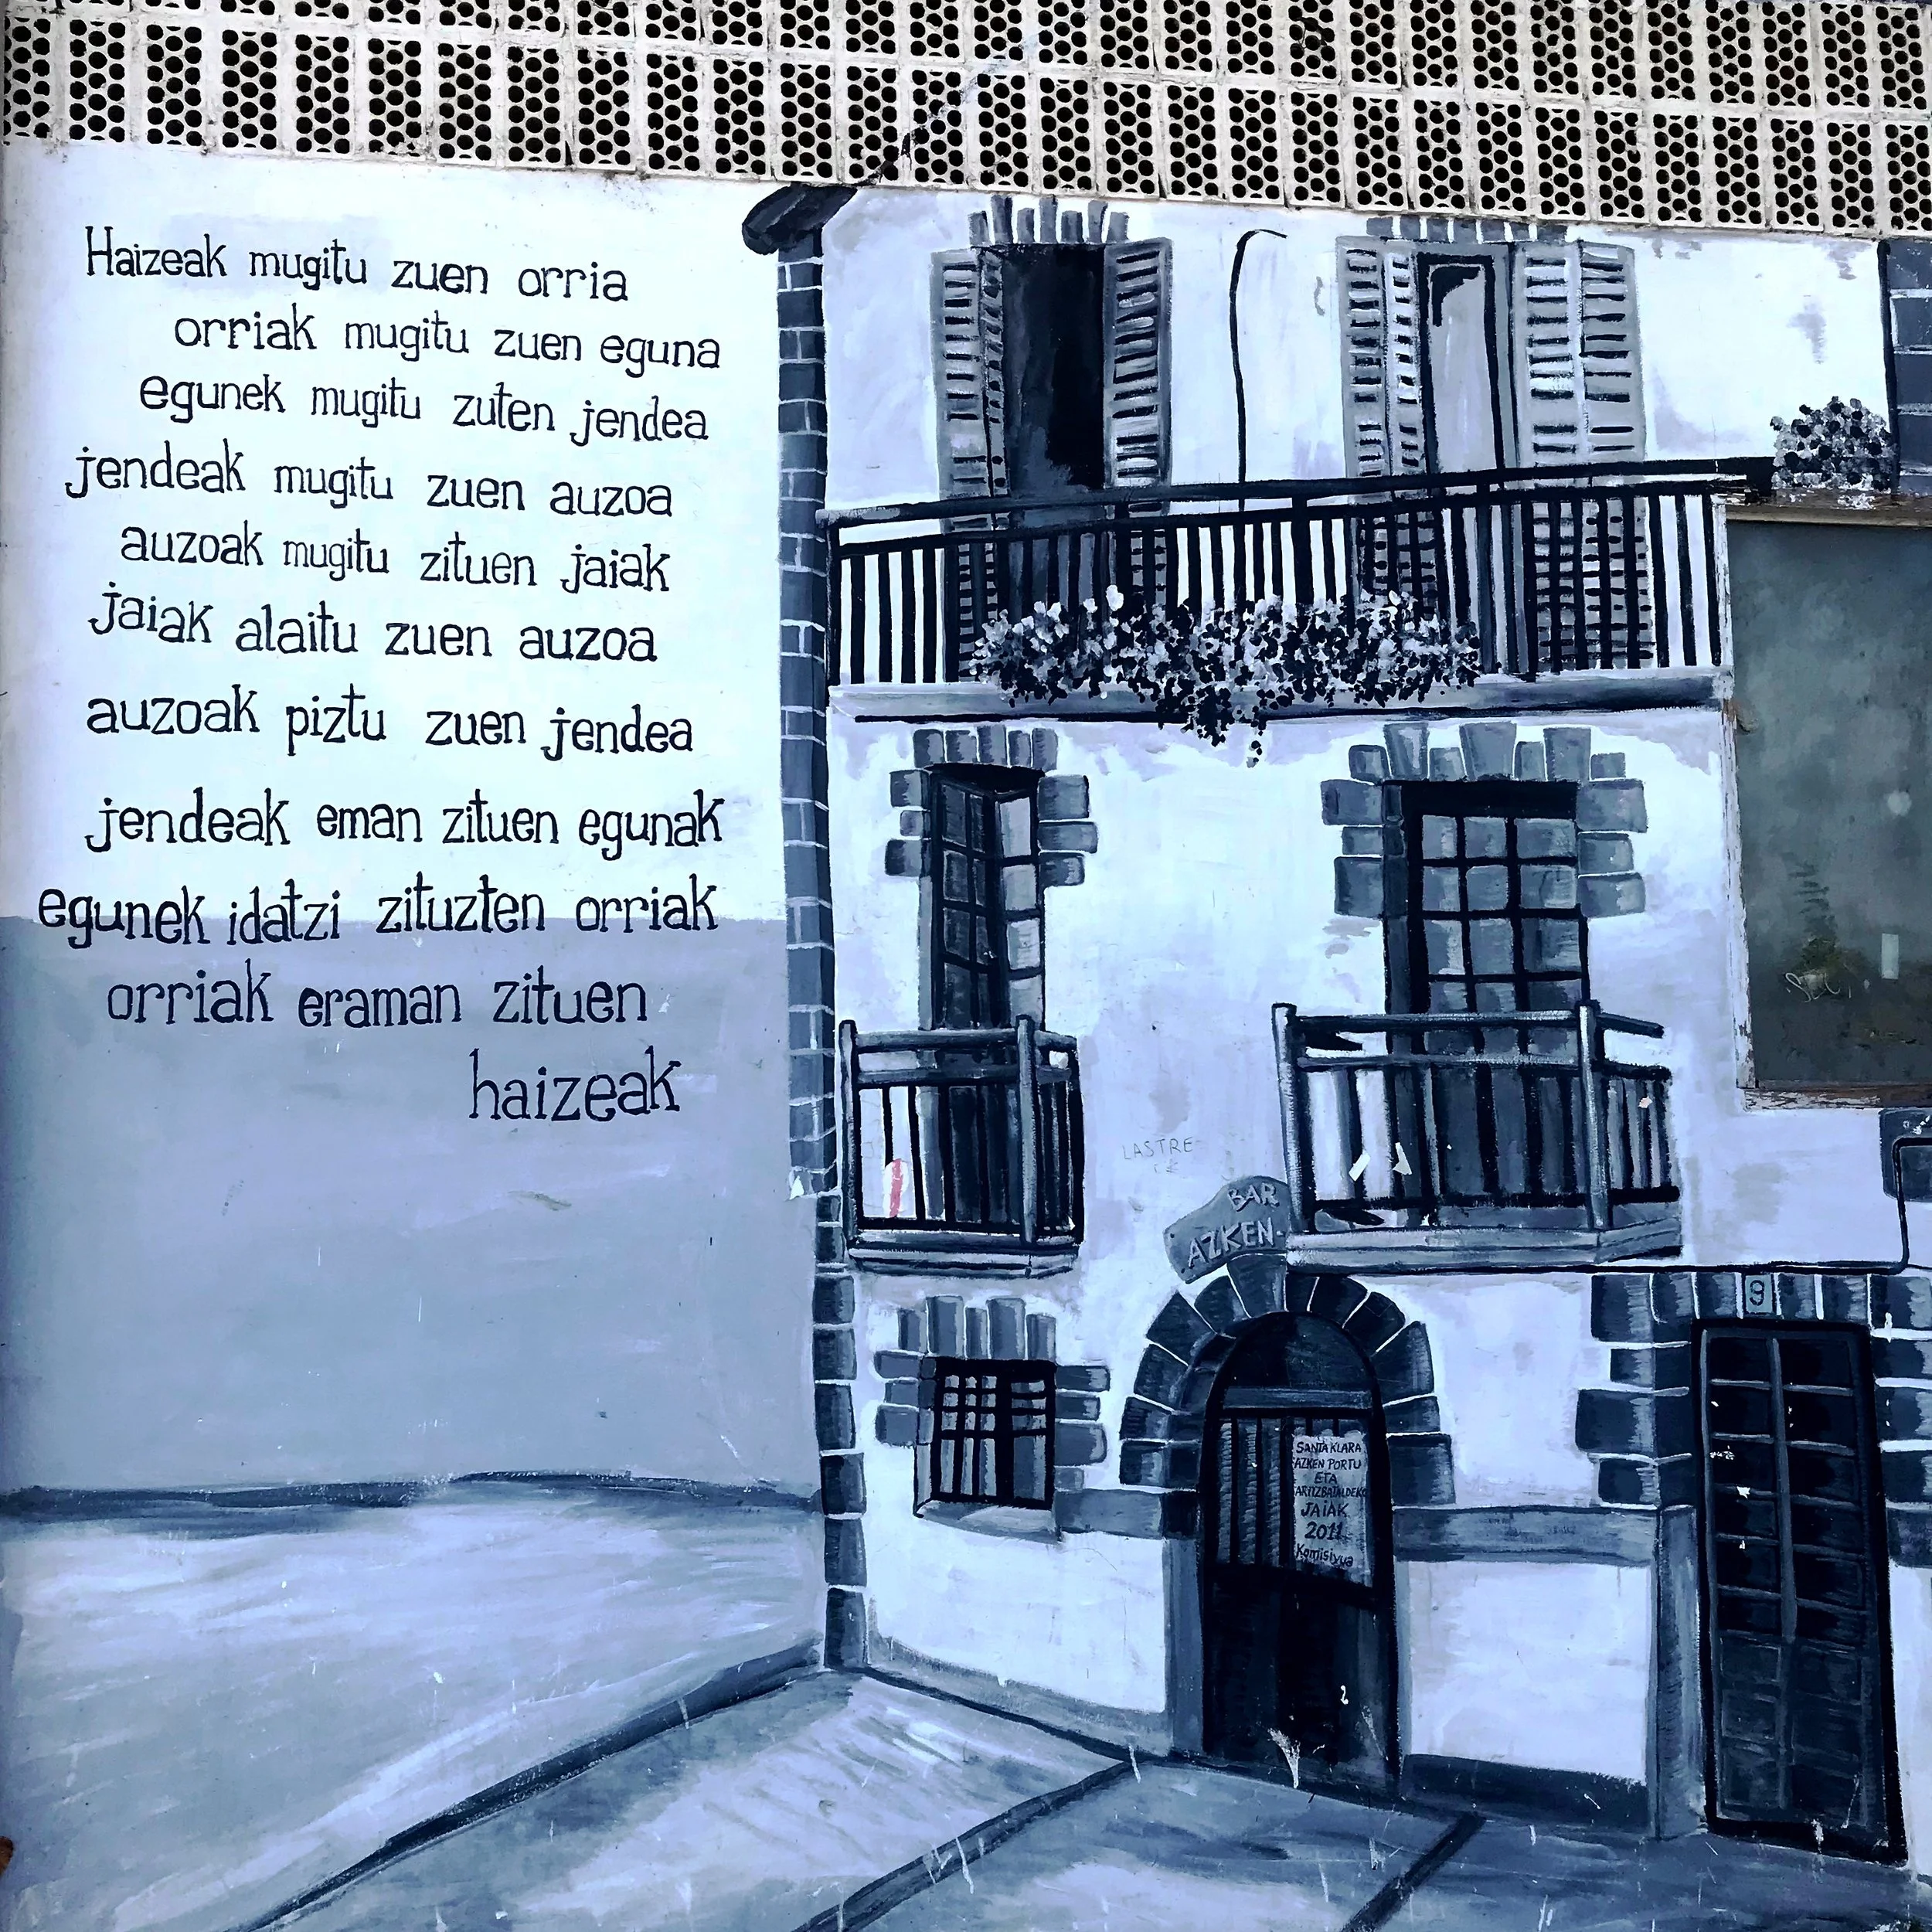 Haizeak mugitu zuen orria
orriak mugitu zuen eguna
egunek mugitu zuten jendea
jendeak mugitu zuen auzoa
auzoak mugitu zituen jaiak
jaiak alaitu zuen auzoa
auzoak piztu zuen jendea
jendeak eman zituen egunak
egunek idatzi zituzten orriak
orriak eraman zituen
haizeak
LASTRE
BAR
AZKEN-
9
SANTA KLARA
AZKEN PORTU
ETA
ARITZBATALDEKO
JAIAK
2011
Komisiyua